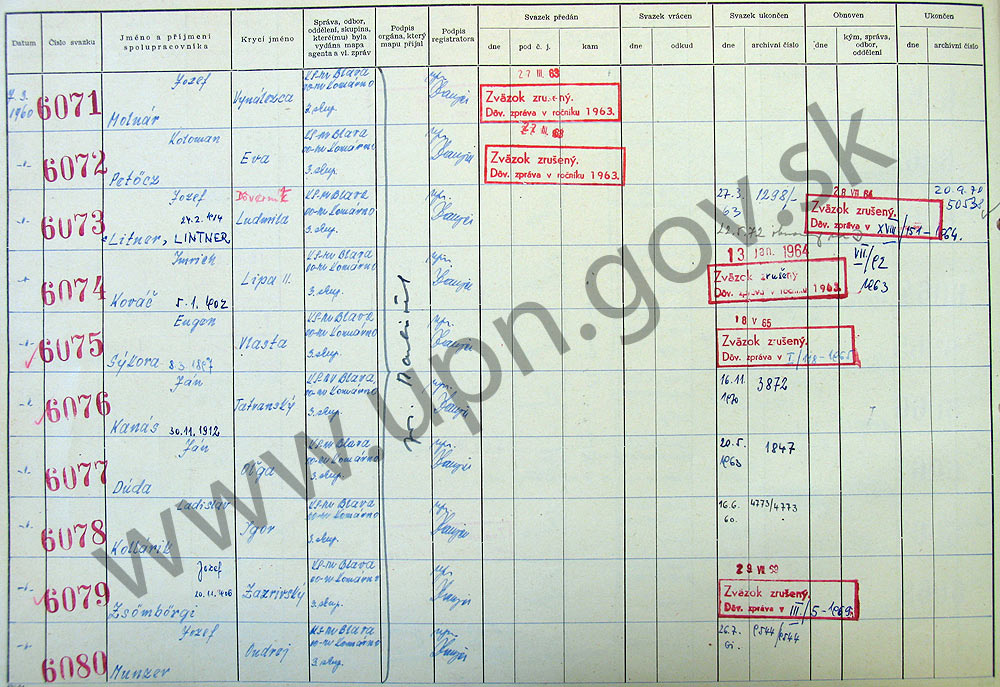 Datum
Číslo svazku
Jméno a příjmení
spolupracovníka
Krycí jméno
Správa, odbor,
oddělení, skupina,
které(mu) byla
vydána mapa
agenta a vl. zpráv
Podpis
orgána, který
mapu přijal
Podpis
registratora
Svazek předán
dne
pod č. j.
kam
Svazek vrácen
dne
odkud
Svazek ukončen
dne
archivní číslo
Obnoven
dne
kým, správa,
odbor,
oddělení
Ukončen
dne
archivní číslo
1960
6071
Jozef
Molnár
Vynálezca
KS-MV Blava
oo-MV Komárno
3. skup.
27 III. 63
Zväzok zrušený.
Dôv. zpráva v ročníku 1963.
6072
Koloman
Petőcz
Eva
KS-MV Blava
oo-MV Komárno
3. skup.
27 III. 63
Zväzok zrušený.
Dôv. zpráva v ročníku 1963.
6073
Jozef
Litner, LINTNER
Dôverník
Ludmila
KS-MV Blava
oo-MV Komárno
3. skup.
27.3.
63
1298/-
22.5.72
28 VII 64
Zväzok zrušený.
Dôv. zpráva v XVIII/151-1964.
20.9.70
6074
Imrich
Kováč 5.1.1902
Lipa II.
KS-MV Blava
oo-MV Komárno
3. skup.
13 jan. 1964
Zväzok zrušený
Dôv. zpráva v ročníku 1963
VII./82
1963
6075
Eugen
Sýkora 8.3.1897
Vlasta
KS-MV Blava
oo-MV Komárno
3. skup.
18 V 65
Zväzok zrušený.
Dôv. zpráva v I./148-1965
6076
Ján
Kanás 30.11.1912
Tatranský
KS-MV Blava
oo-MV Komárno
3. skup.
16.11.
1970
3872
6077
Ján
Dúda
Oľga
KS-MV Blava
oo-MV Komárno
3. skup.
20.5.
1963
1847
6078
Ladislav
Kollárik
Igor
KS-MV Blava
oo-MV Komárno
3. skup.
16.6.
60.
4773/4773
6079
Jozef
20.11.1906
Zsömbörgi
Zázrivský
KS-MV Blava
oo-MV Komárno
3. skup.
Zväzok zrušený.
Dôv. zpráva v III./5-1969
6080
Jozef
Munzer
Ondrej
KS-MV Blava
oo-MV Komárno
3. skup.
26.7.
61.
www.upn.gov.sk